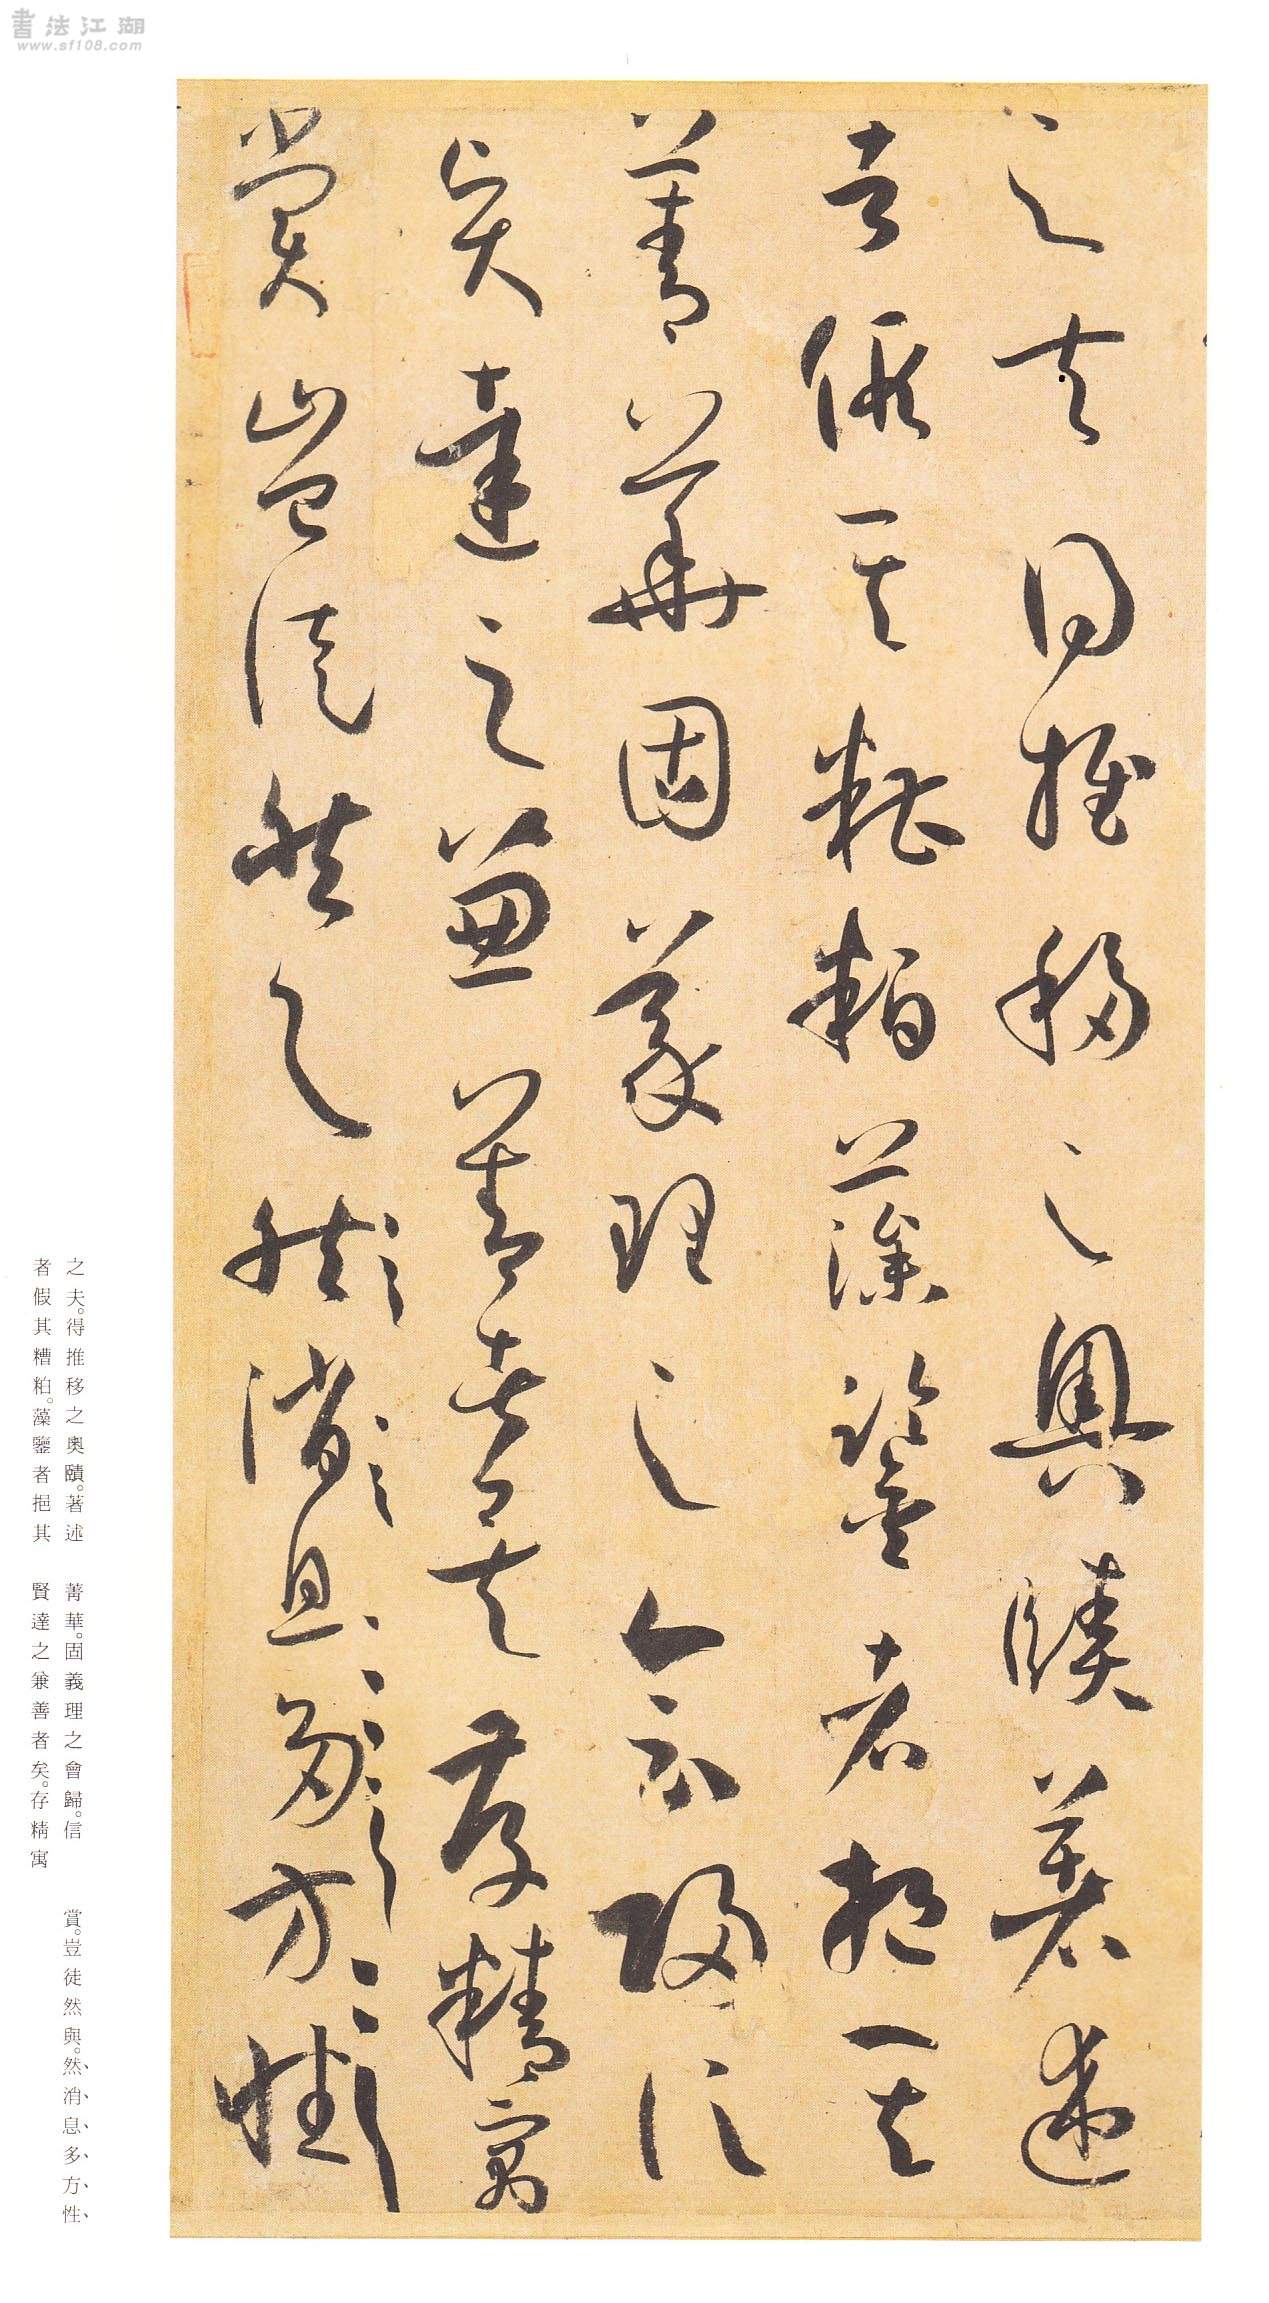 書法江湖
www.sf108.com
之夫得推移之奧賾著述
者假其糟粕藻鑒者挹其
菁華固義理之會歸信
賢達之兼善者矣存精寓
賞豈徒然與然消息多方性
之夫。得推移之奧賾。著述
者假其糟粕。藻鑒者挹其
菁華。固義理之會歸。信
賢達之兼善者矣。存精寓
賞。豈徒然與。然、消、息、多、方、性、